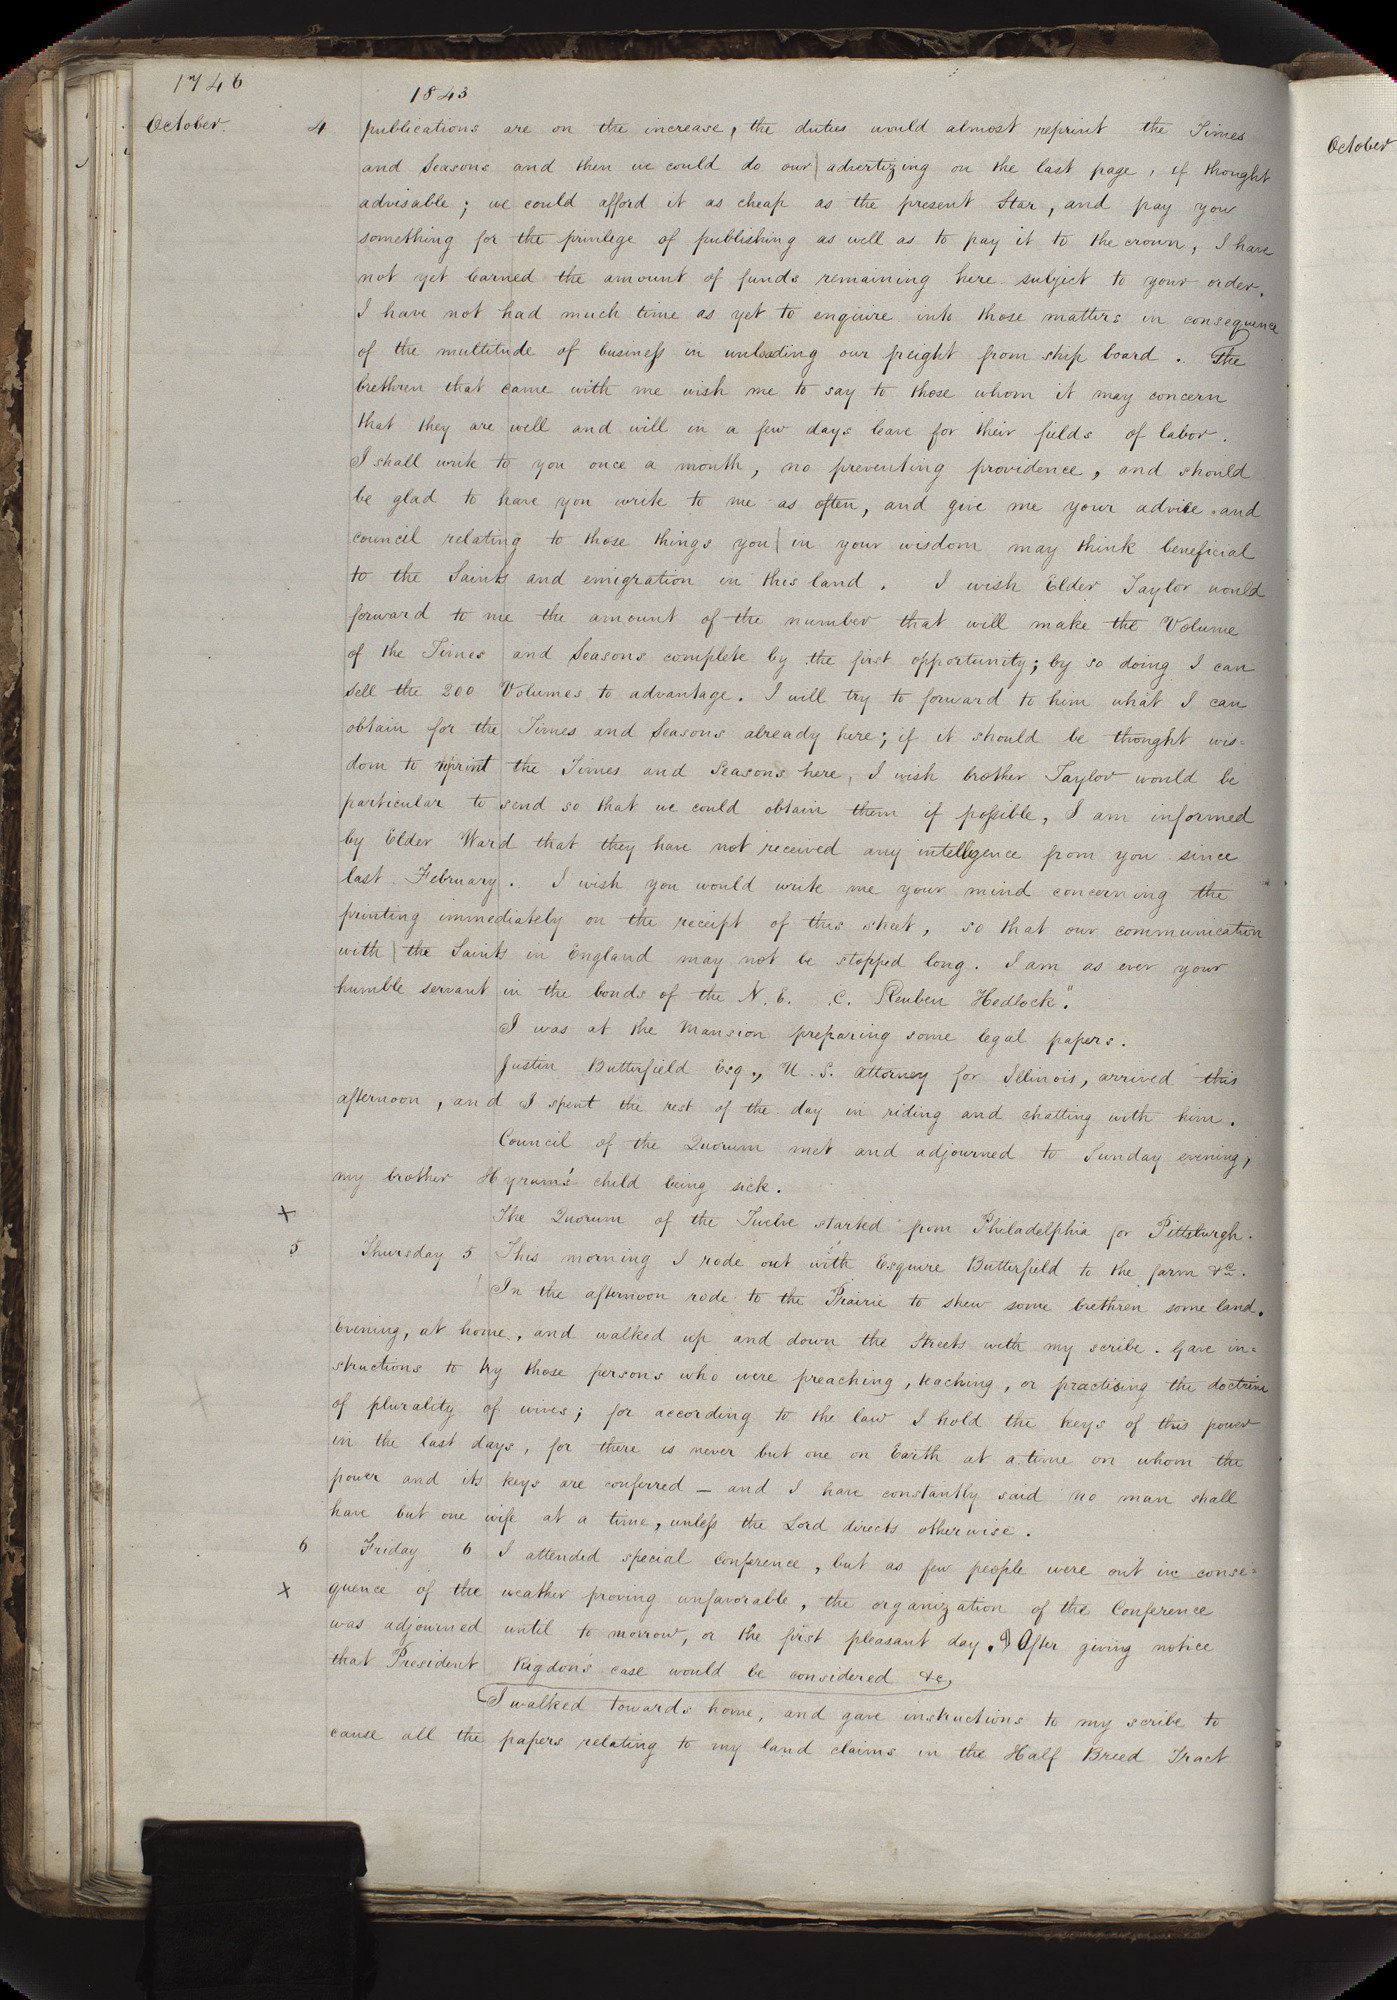 1746
1843
October 4 publications are on the increase, the duties would almost reprint the Times
and Seasons and then we could do our advertizing on the last page, if thought
advisable; we could afford it as cheap as the present Star, and pay you
something for the privilege of publishing as well as to pay it to the crown, I have
not yet learned the amount of funds remaining here subject to your order.
I have not had much time as yet to enquire into those matters in consequence
of the multitude of business in unloading our freight from ship board. The
brethren that came with me wish me to say to those whom it may concern
that they are well and will in a few days leave for their fields of labor.
I shall write to you once a month, no preventing providence, and should
be glad to have you write to me as often, and give me your advice and
council relating to those things you in your wisdom may think beneficial
to the Saints and emigration in this land. I wish Elder Taylor would
forward to me the amount of the number that will make the Volume
of the Times and Seasons complete by the first opportunity; by so doing I can
sell the 200 Volumes to advantage. I will try to forward to him what I can
obtain for the Times and Seasons already here; if it should be thought wis=
dom to reprint the Times and Seasons here, I wish brother Taylor would be
particular to send so that we could obtain them if possible, I am informed
by Elder Ward that they have not received any intelligence from you since
last February. I wish you would write me your mind concerning the
printing immediately on the receipt of this sheet, so that our communication
with the Saints in England may not be stopped long. I am as ever your
humble servant in the bonds of the N. E. C. Reuben Hedlock".
I was at the Mansion preparing some legal papers.
Justin Butterfield Esq., U. S. Attorney for Illinois, arrived this
afternoon, and I spent the rest of the day in riding and chatting with him.
Council of the Quorum met and adjourned to Sunday evening,
my brother Hyrum's child being sick.
x The Quorum of the Twelve started from Philadelphia for Pittsburgh.
5 Thursday 5 This morning I rode out with Esquire Butterfield to the farm &c.
In the afternoon rode to the Prairie to shew some brethren some land.
Evening, at home, and walked up and down the Streets with my scribe. Gave in=
structions to try those persons who were preaching, teaching, or practising the doctrine
of plurality of wives; for according to the law I hold the keys of this power
in the last days, for there is never but one on Earth at a time on whom the
power and its keys are conferred — and I have constantly said no man shall
have but one wife at a time, unless the Lord directs otherwise.
6 Friday 6 I attended special Conference, but as few people were out in conse=
x quence of the weather proving unfavorable, the organization of the Conference
was adjourned until to morrow, or the first pleasant day. ¶ After giving notice
that President Rigdon's case would be considered &c,
I walked towards home, and gave instructions to my scribe to
cause all the papers relating to my land claims in the Half Breed Tract
October